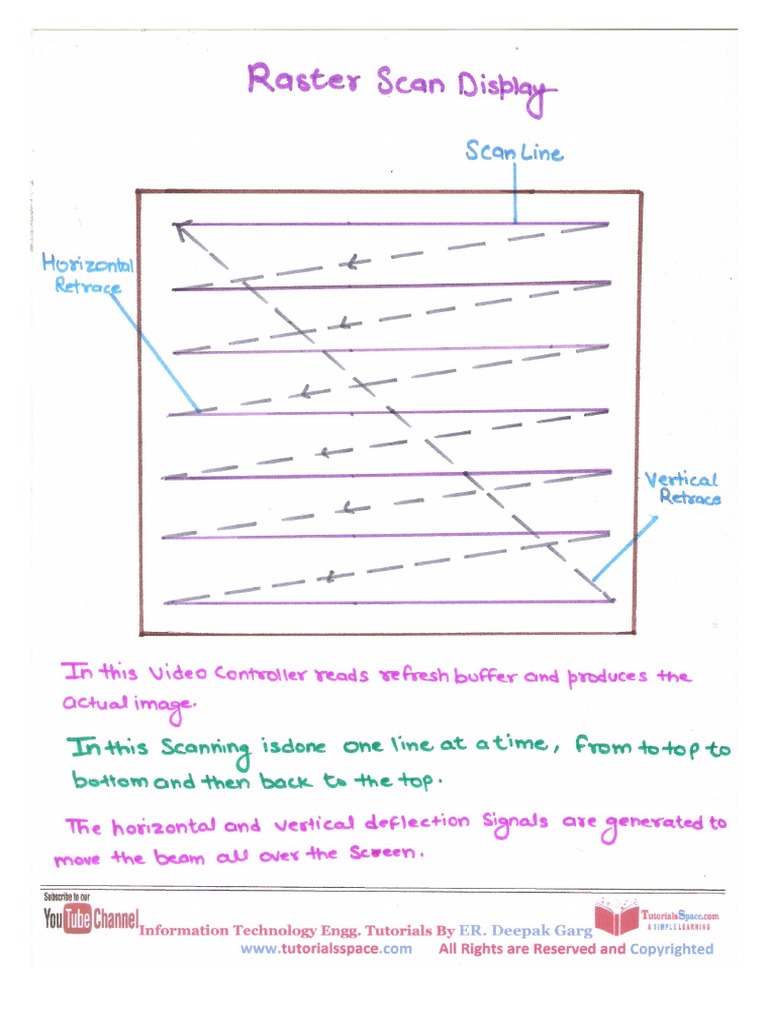 Raster Scan Display
Scan Line
Horizontal
Retrace
Vertical
Retrace
In this Video Controller reads refresh buffer and produces the
actual image.
In this Scanning isdone one line at a time, from to top to
bottom and then back to the top.
The horizontal and vertical deflection Signals are generated to
move the beam all over the Screen.
Subscribe to our
YouTube Channel
Information Technology Engg. Tutorials By ER. Deepak Garg
TutorialsSpace.com
A SIMPLE LEARNING
www.tutorialsspace.com All Rights are Reserved and Copyrighted